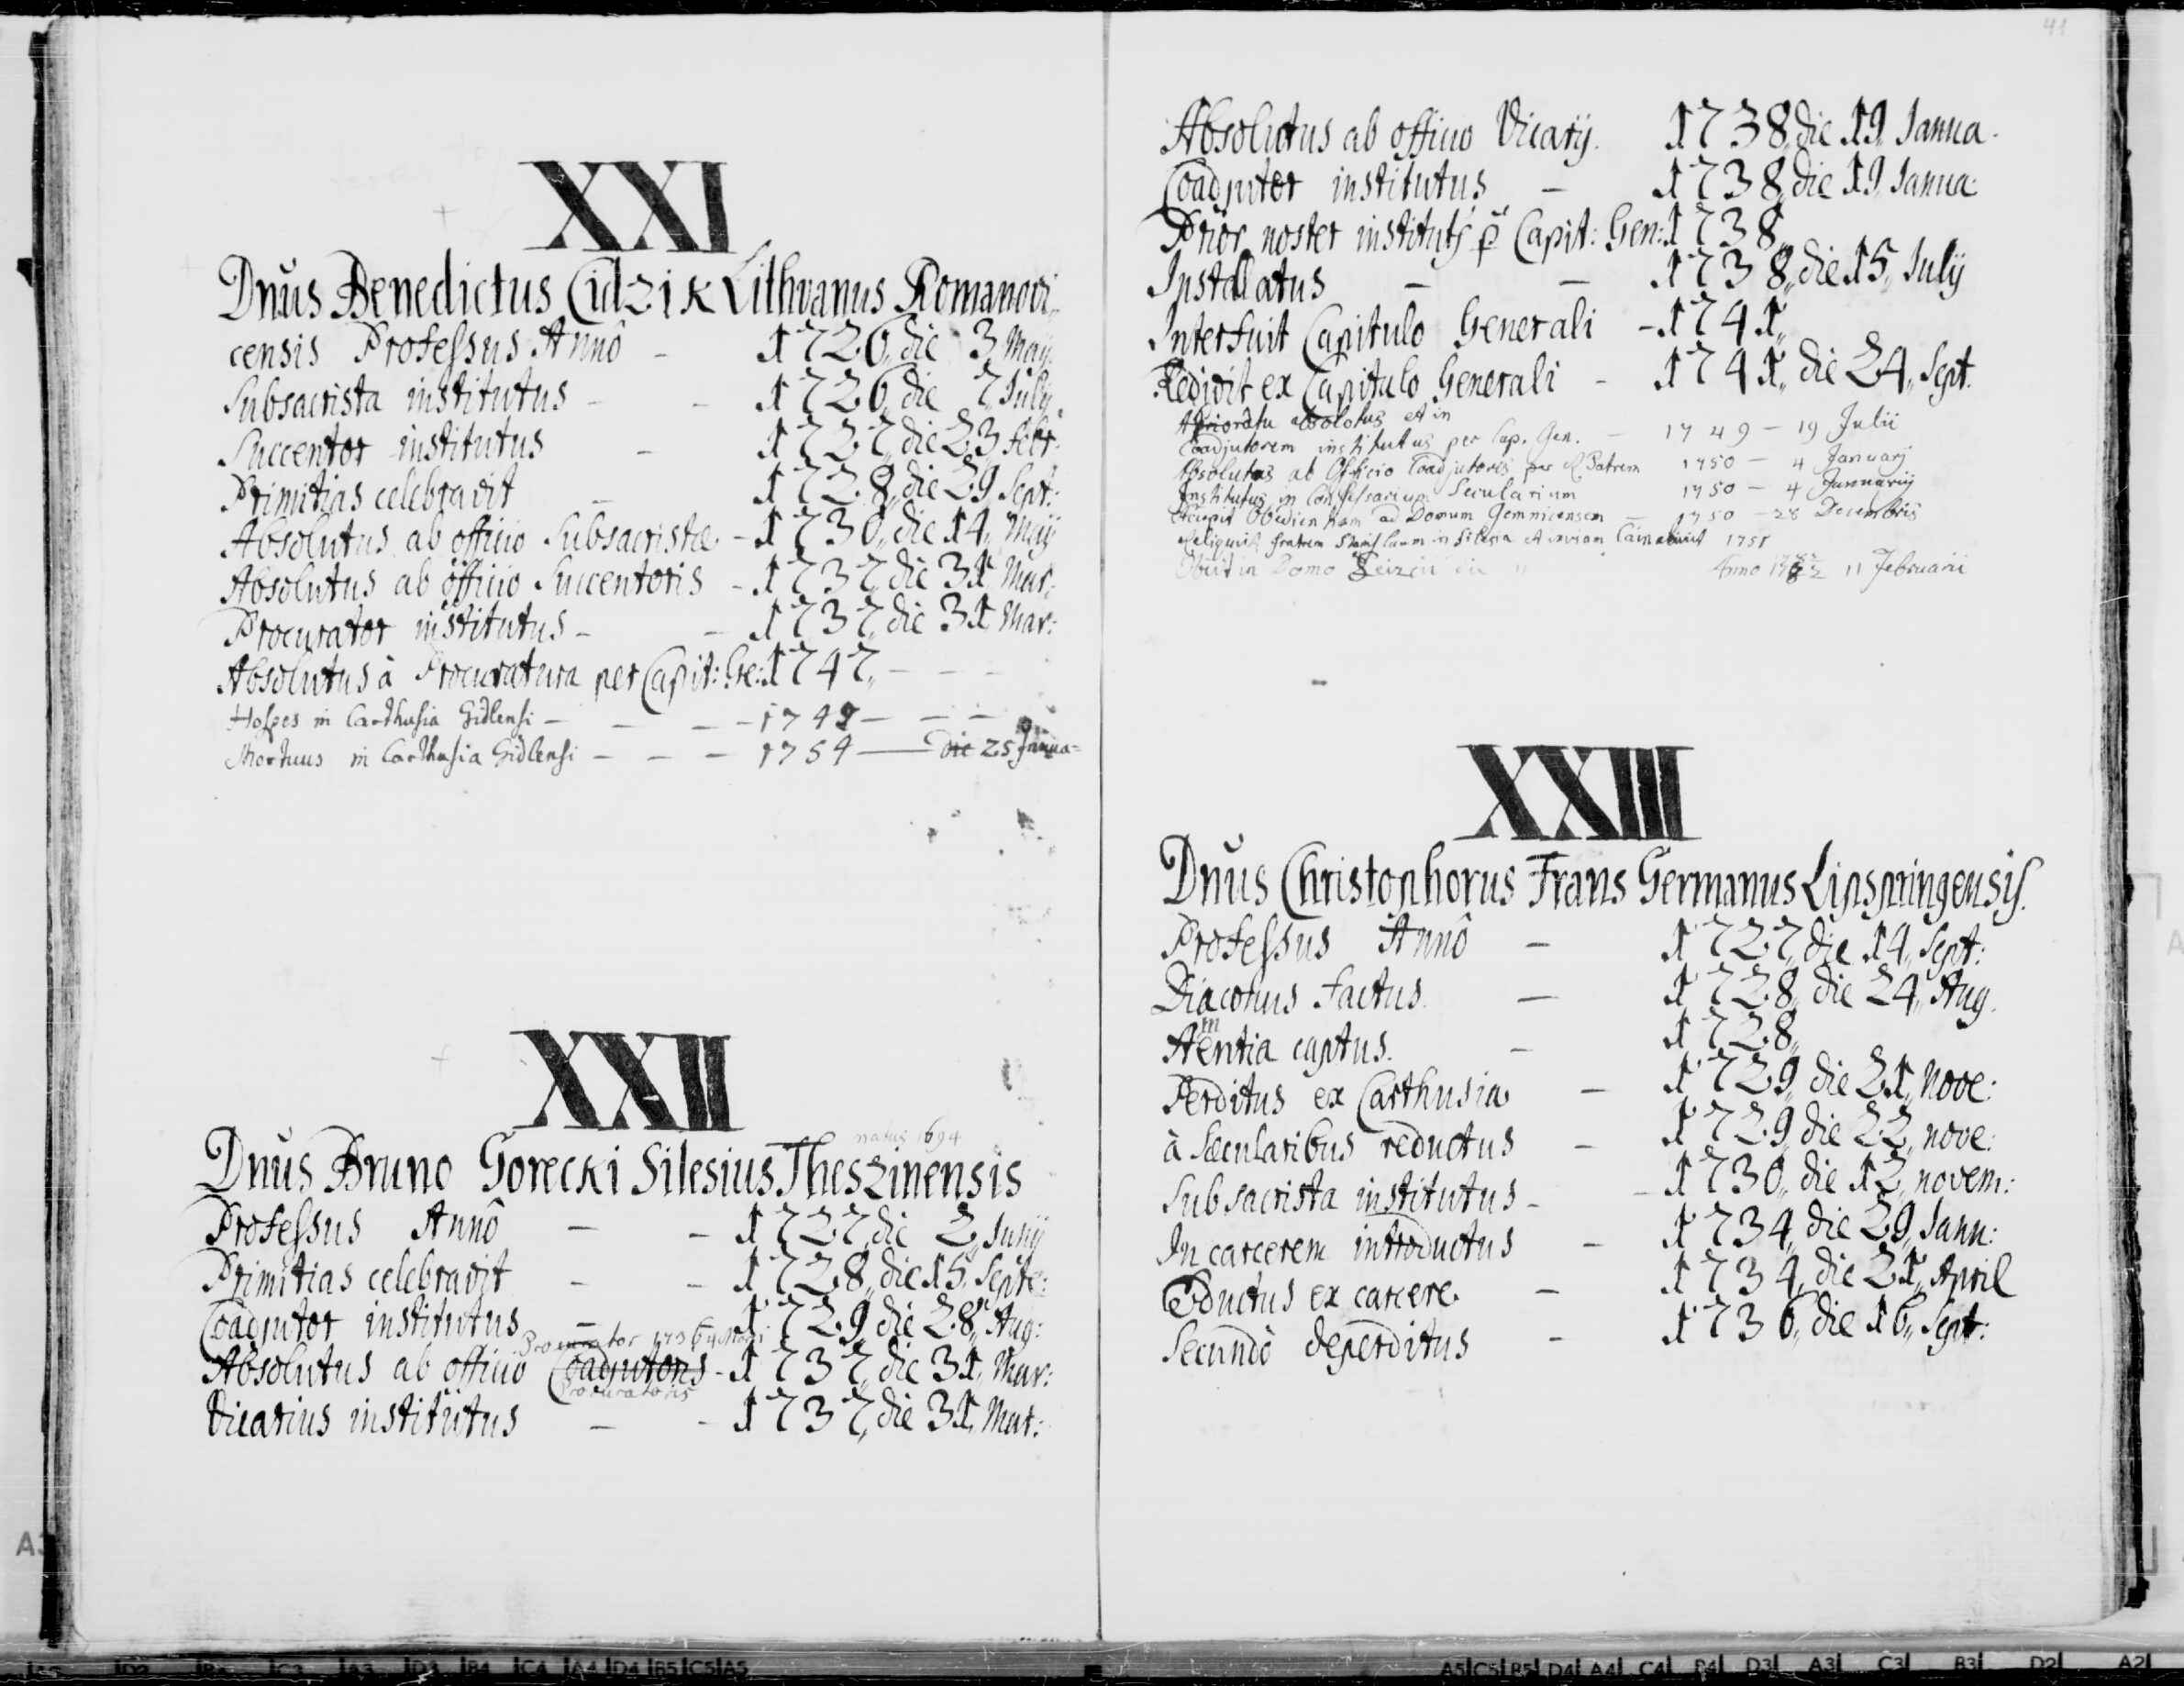 XXI
Dnūs Benedictus Cidzik Lithvanus Romanovi„
censis Professus Annô – 1726„ die 3 Maij.
Subsacrista institutus – – 1726„ die 7 Julij.
Succentor institutus – 1727„ die 23 Febr:
Primitias celebravit – 1728„ die 29 Sept:
Absolutus ab officio Subsacristæ – 1730„ die 14„ Maij
Absolutus ab officio Succentoris – 1737„ die 31 Mar:
Procurator institutus – – 1737„ die 31 Mar:
Absolutus à Procuratura per Capit: Ge: 1747„ – – –
Hospes in Carthusia Gidlensi – – – – 1749 – – –
Mortuus in Carthusia Gidlensi – – – 1754 — Die 25 Janua=
XXII
natus 1694
Dnūs Bruno Gorecki Silesius Theszinensis
Professus Annô – – 1727„ die 2„ Junij
Primitias celebravit – – 1728„ die 15 Septe:
Coadjutor institutus – 1729„ die 28„ Aug:
Procurator 1736
Absolutus ab officio Coadjutoris – 1737„ die 31„ Mar:
Procuratoris
Vicarius institutus – – 1737„ die 31„ Mar:
41
Absolutus ab officio Vicarij. 1738„ die 19„ Janua.
Coadjutor institutus – 1738„ die 19 Janua:
Prior noster institut9 p Capit: Gen: 1738„
Installatus – – 1738„ die 15„ Julij
Interfuit Capitulo Generali – 1741„
Redivit ex Capitulo Generali – 1741„ die 24„ Sept.
A Prioratu absolotus et in
Coadjutorem institutus per Cap. Gen. – 1749 – 19 Julii
Absolutus ab Officio Coadjutoris per R Patrem 1750 – 4 Januarj
Institutus in Confessarium Secularium 1750 – 4 Januarij
Accepit Obedientiam ad Domum Gemnicensem – 1750 – 28 Decembris
Reliquit fratrem in Silesia et 1751
Obiit in Domo Anno 11 Februarii
XXIII
Dnūs Christophorus Frans Germanus Lipspringensis.
Professus Annô – 1727„ die 14„ Sept:
Diaconus Factus. – 1728„ die 24„ Aug.
m
Aentia captus. – 1728„
Perditus ex Carthusia – 1729„ die 21„ Nove:
à Sæcularibus reductus – 1729„ die 22„ nove:
Subsacrista institutus – – 1730„ die 12„ novem:
In carcerem introductus – 1734„ die 29„ Janu:
Eductus ex carcere. – 1734„ die 21„ April
Secundò deperditus – 1736„ die 16„ Sept: